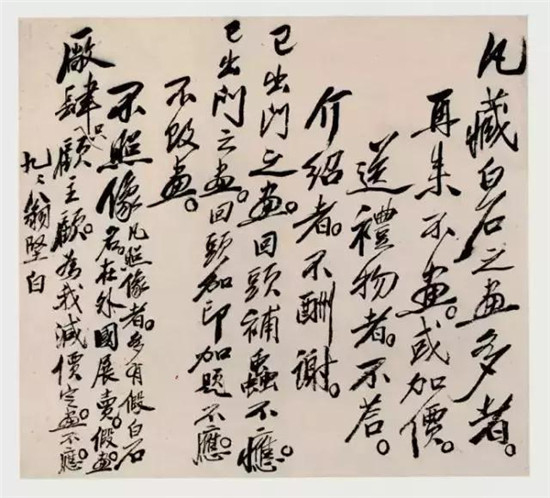 凡藏白石之畫多者。
再來不畫。或加價。
送禮物者。不荅。
介紹者。不酬謝。
已出門之畫。回頭補蟲不應。
已出門之畫。回頭加印加題不應。
不改畫。
不照像。凡照像者。多有假白石
名在外國展賣。假畫。
厰肆只顧主顧。為我減價定畫不應。
九〻翁堅白